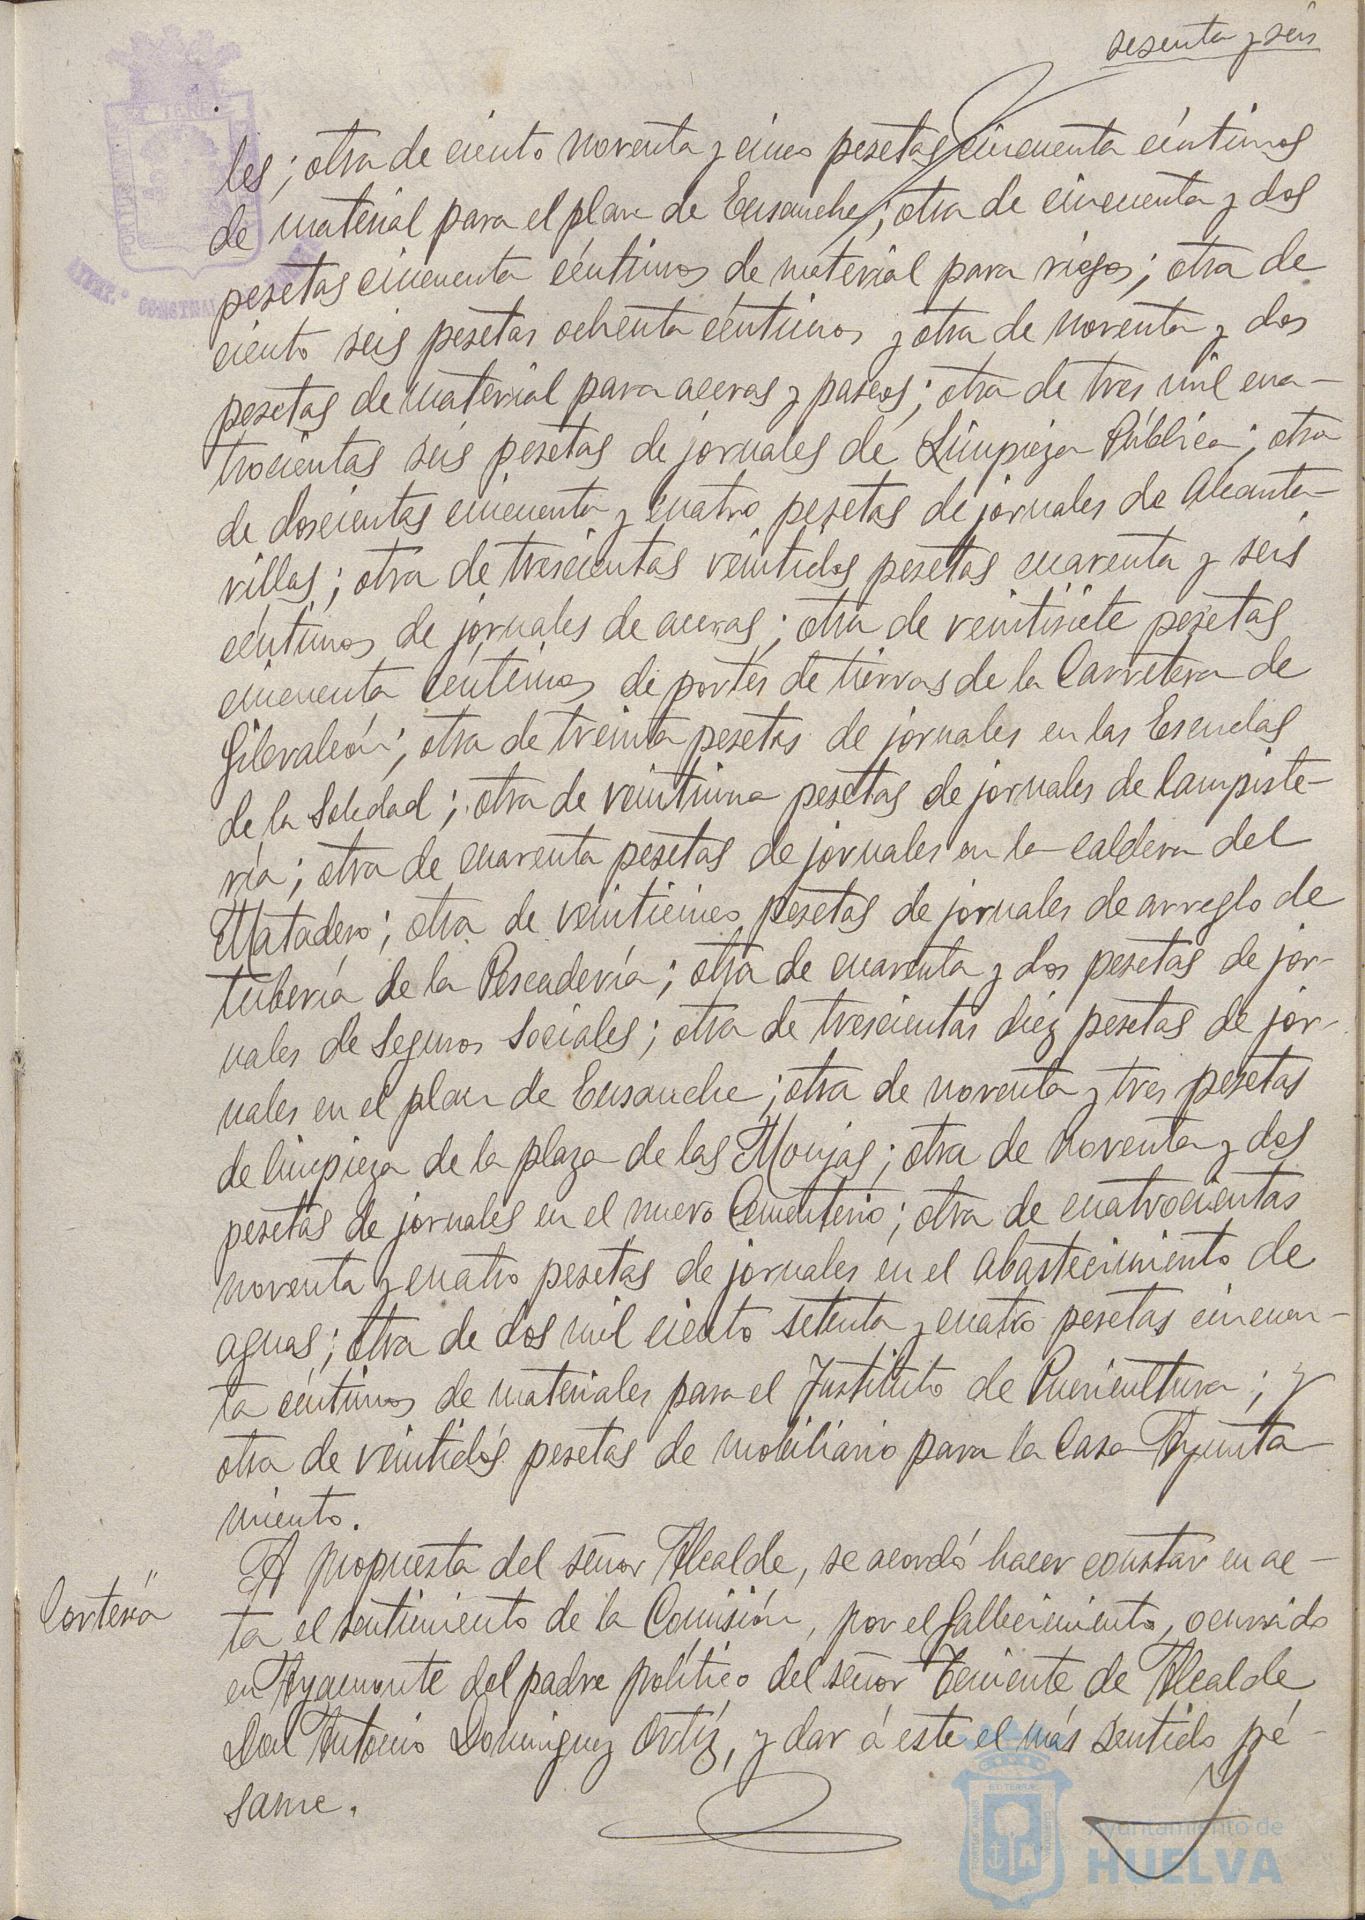 sesenta y seis
les; otra de ciento noventa y cinco pesetas cincuenta céntimos
de material para el plan de Ensanche; otra de cincuenta y dos
pesetas cincuenta céntimos de material para riegos; otra de
ciento seis pesetas ochenta céntimos y otra de noventa y dos
pesetas de material para aceras y paseos; otra de tres mil cua-
trocientas seis pesetas de jornales de Limpieza Pública; otra
de doscientas cincuenta y cuatro pesetas de jornales de Alcanta-
rillas; otra de trescientas veintidos pesetas cuarenta y seis
céntimos de jornales de aceras; otra de veintisiete pesetas
cincuenta céntimos de portes de tierras de la Carretera de
Gibraleón; otra de treinta pesetas de jornales en las Escuelas
de la Soledad; otra de veintiuna pesetas de jornales de lampiste-
ría; otra de cuarenta pesetas de jornales en la caldera del
Matadero; otra de veinticinco pesetas de jornales de arreglo de
tubería de la Pescadería; otra de cuarenta y dos pesetas de jor-
nales de Seguros Sociales; otra de trescientas diez pesetas de jor-
nales en el plan de Ensanche; otra de noventa y tres pesetas
de limpieza de la plaza de las Monjas; otra de noventa y dos
pesetas de jornales en el nuevo Cementerio; otra de cuatrocientas
noventa y cuatro pesetas de jornales en el abastecimiento de
aguas; otra de dos mil ciento setenta y cuatro pesetas cincuen-
ta céntimos de materiales para el Instituto de Puericultura; y
otra de veintidós pesetas de mobiliario para la Casa Ayunta-
miento.
A propuesta del señor Alcalde, se acordó hacer constar en ac-
Cortesía
ta el sentimiento de la Comisión, por el fallecimiento, ocurrido
en Ayamonte del padre político del señor Teniente de Alcalde
Don Antonio Domínguez Ortíz, y dar á este el más sentido pé-
same.
Ayuntamiento de
HUELVA